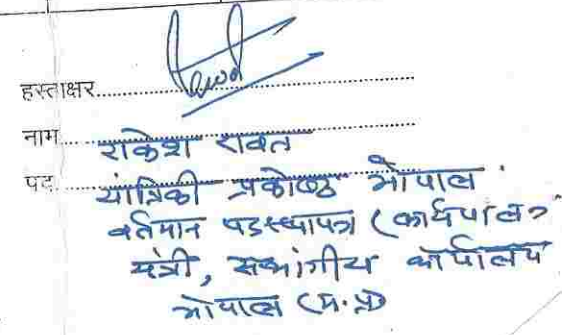 हस्ताक्षर
नाम राकेश रावत
पद यांत्रिकी प्रकोष्ठ भोपाल
वर्तमान (कार्यपालन
यंत्री, संभागीय कार्यालय
भोपाल (म.प्र)